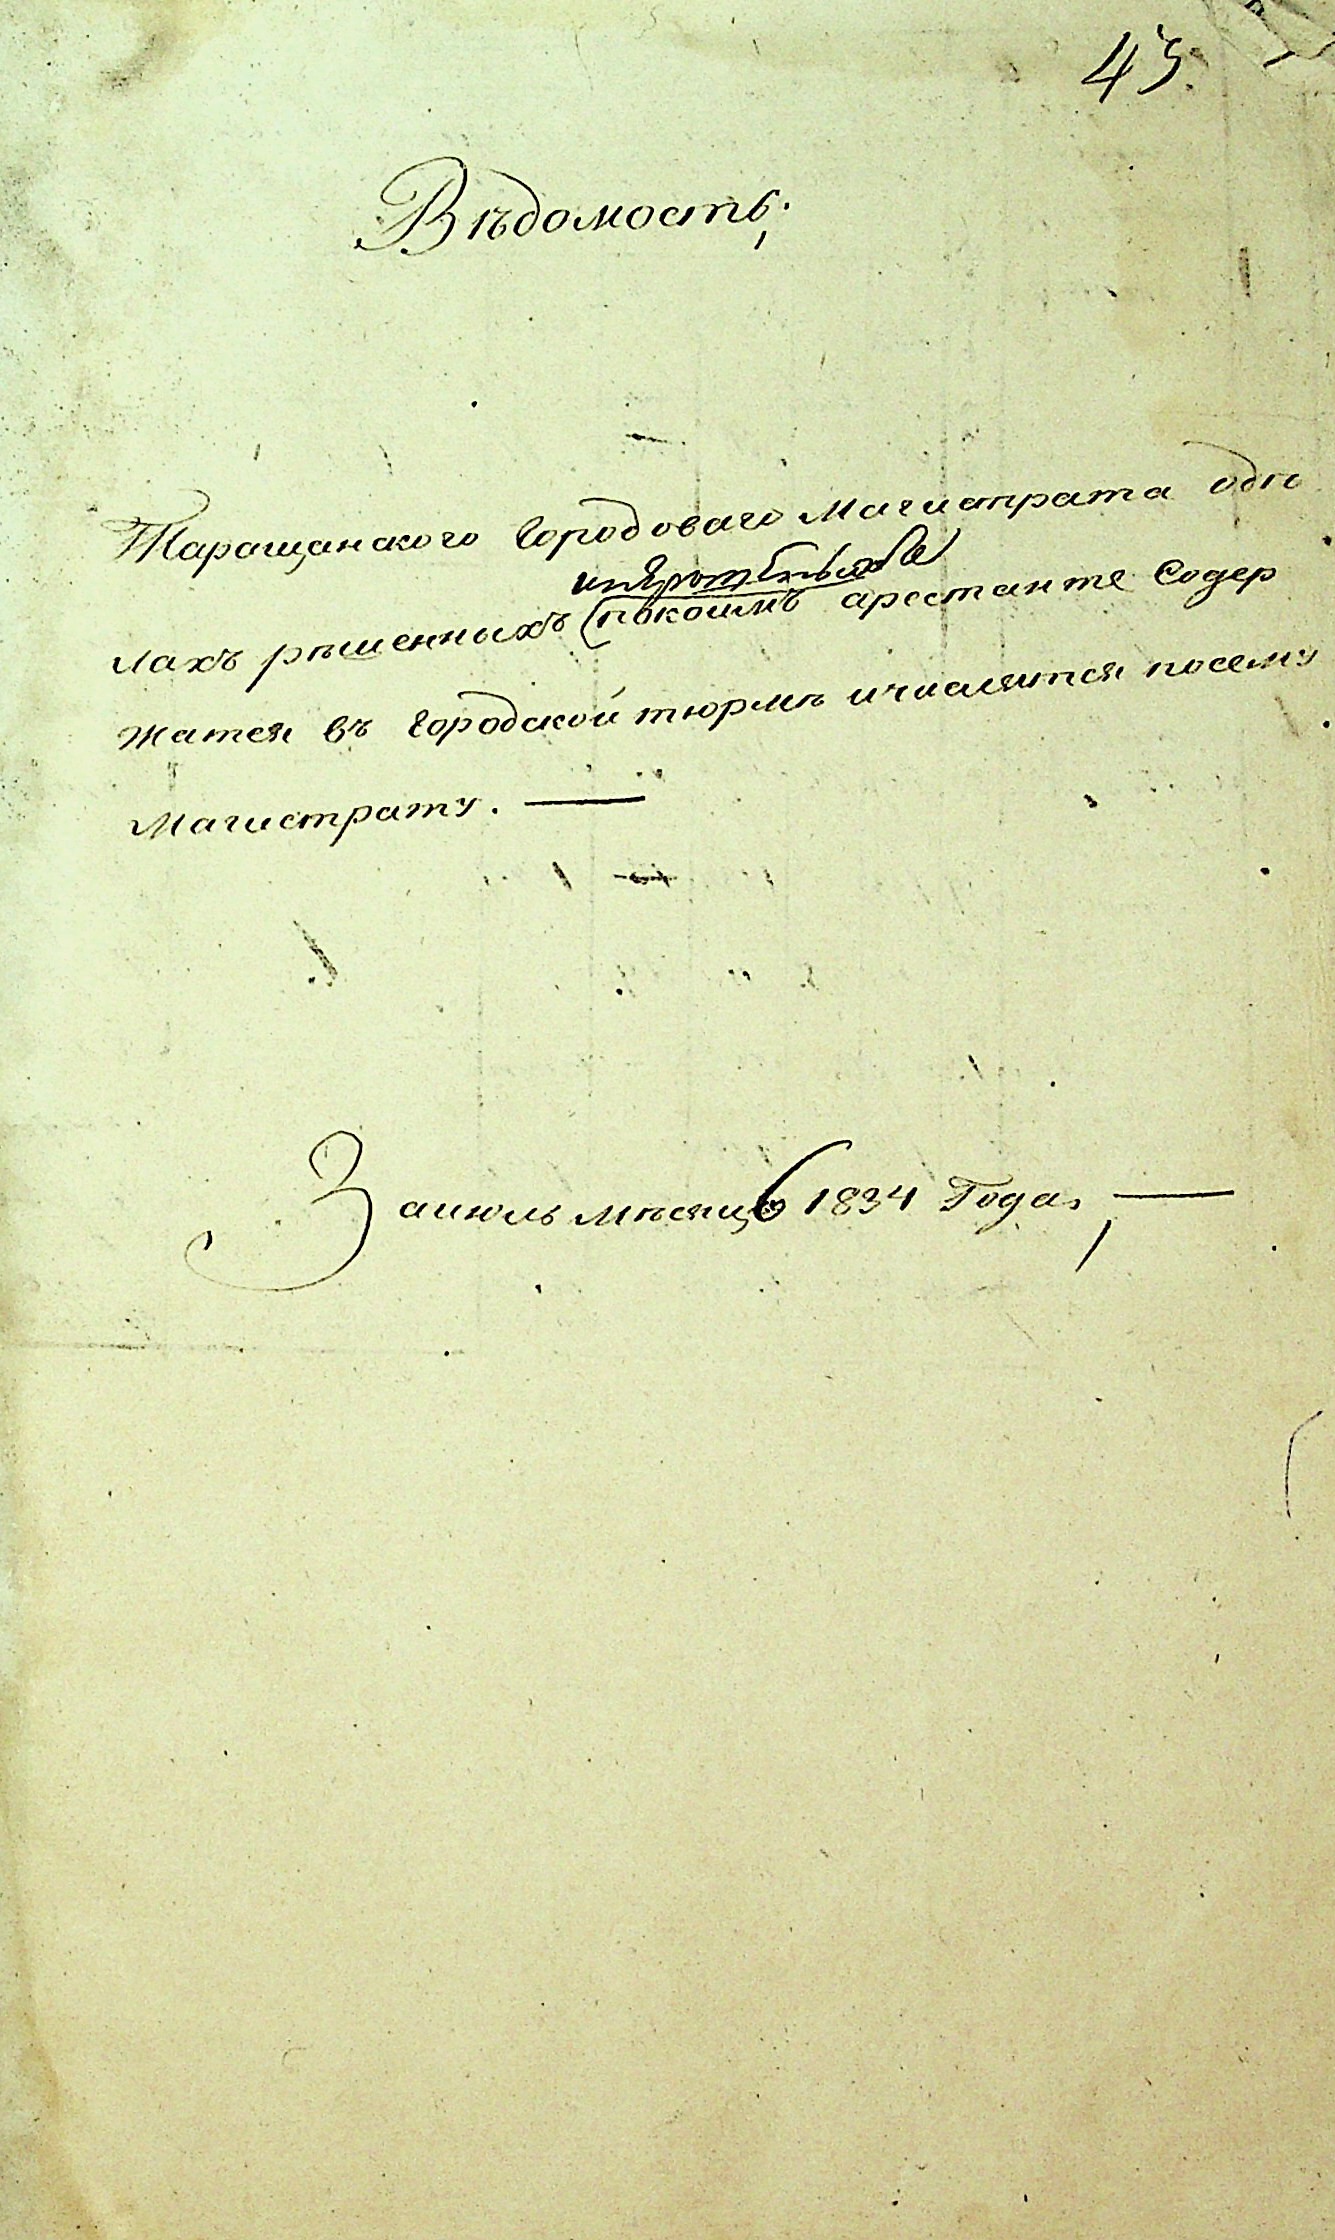 45.
Вѣдомость,
Таращанского Городоваго Магистрата одѣ
лахъ рѣшенныхъ
(покоимъ арестанте Содер
жатся въ Городской тюрмѣ ичислятся посему
Магистрату. —
Заиюль мѣсяцъ 1834 Года, —